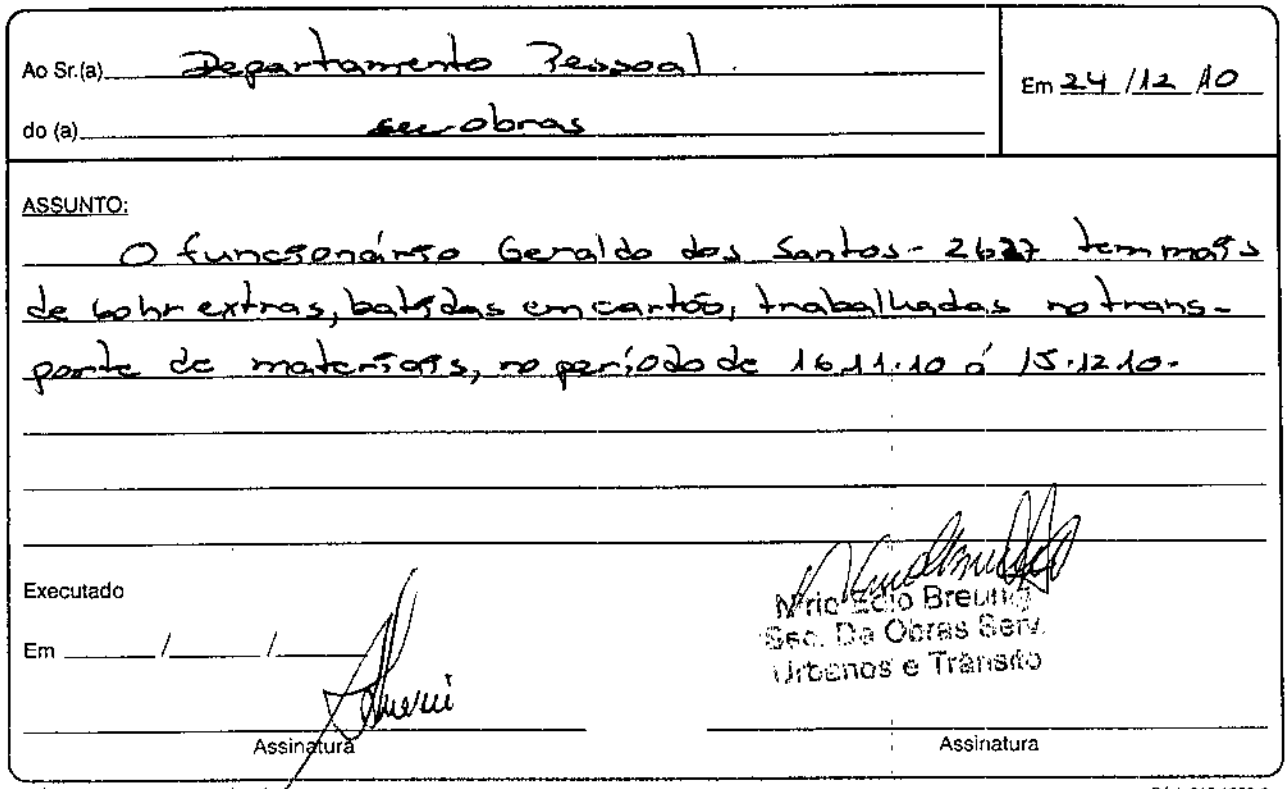 Ao Sr.(a) Departamento Pessoal.
Em 24 /12 /10
do (a) sec obras
ASSUNTO:
O funcionário Geraldo dos Santos - 2627 tem mais
de 60 hr extras, batidas em cartão, trabalhadas no trans-
porte de materiais, no período de 16.11.10 á 15.12.10.
Executado
Em / /
Breunig
Sec. De Obras Serv.
Urbanos e Trânsito
Assinatura
Assinatura